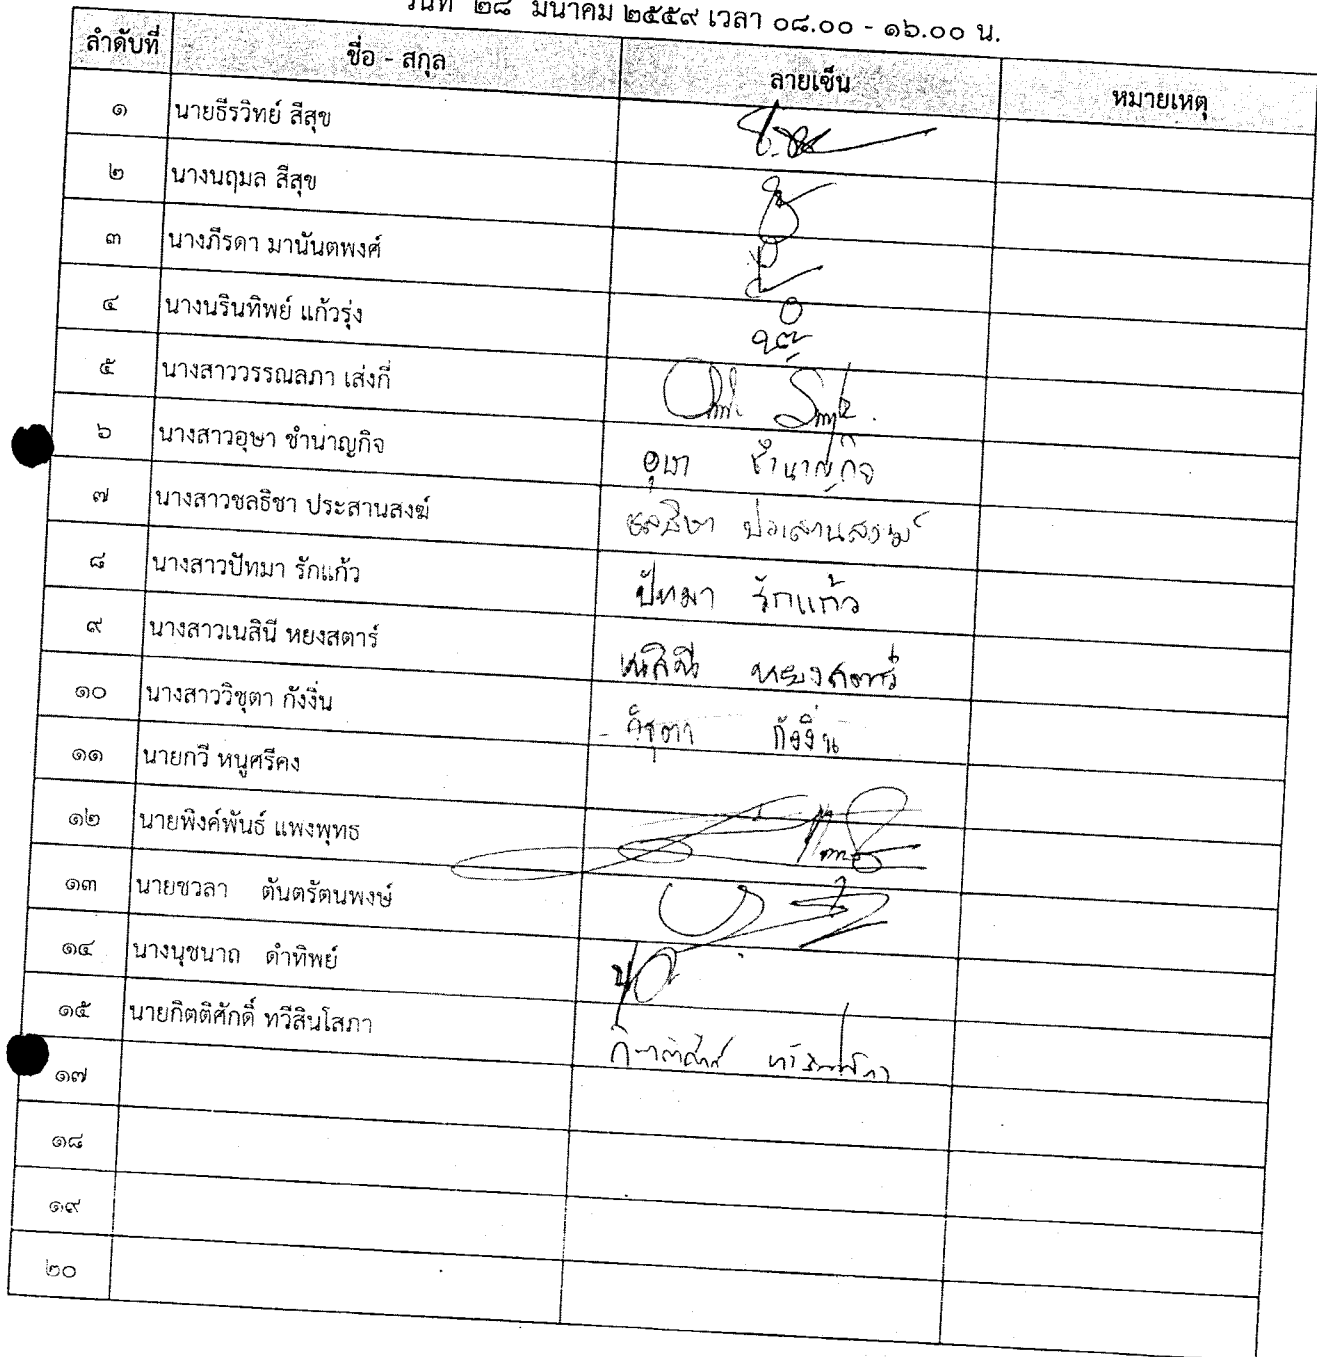 วันที่ ๒๘ มีนาคม ๒๕๕๙ เวลา ๐๘.๐๐ - ๑๖.๐๐ น.
ลำดับที่ ชื่อ - สกุล ลายเซ็น หมายเหตุ
๑ นายธีรวิทย์ สีสุข
๒ นางนฤมล สีสุข
๓ นางภีรดา มานันตพงศ์
๔ นางนรินทิพย์ แก้วรุ่ง
๕ นางสาววรรณลภา เส่งกี่
๖ นางสาวอุษา ชำนาญกิจ อุษา ชำนาญกิจ
๗ นางสาวชลธิชา ประสานสงฆ์ ชลธิชา ประสานสงฆ์
๘ นางสาวปัทมา รักแก้ว ปัทมา รักแก้ว
๙ นางสาวเนสินี หยงสตาร์ เนสินี หยงสตาร์
๑๐ นางสาววิชุตา กังงิ่น วิชุตา กังงิ่น
๑๑ นายกวี หนูศรีคง
๑๒ นายพิงค์พันธ์ แพงพุทธ
๑๓ นายชวลา ตันตรัตนพงษ์
๑๔ นางนุชนาถ ดำทิพย์
๑๕ นายกิตติศักดิ์ ทวีสินโสภา กิตติศักดิ์ ทวีสินโสภา
๑๗
๑๘
๑๙
๒๐